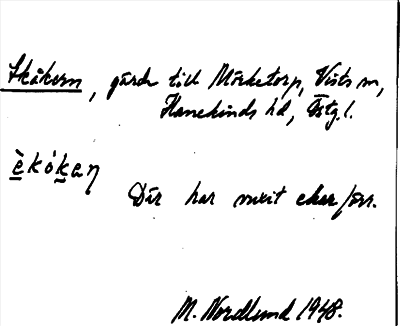 Ekåkern, gärde till Mörketorp, Vists sn,
Hanekinds hd, Östg.l.
èkókaŋ
Där har växt ekar förr.
M. Nordlund 1948.